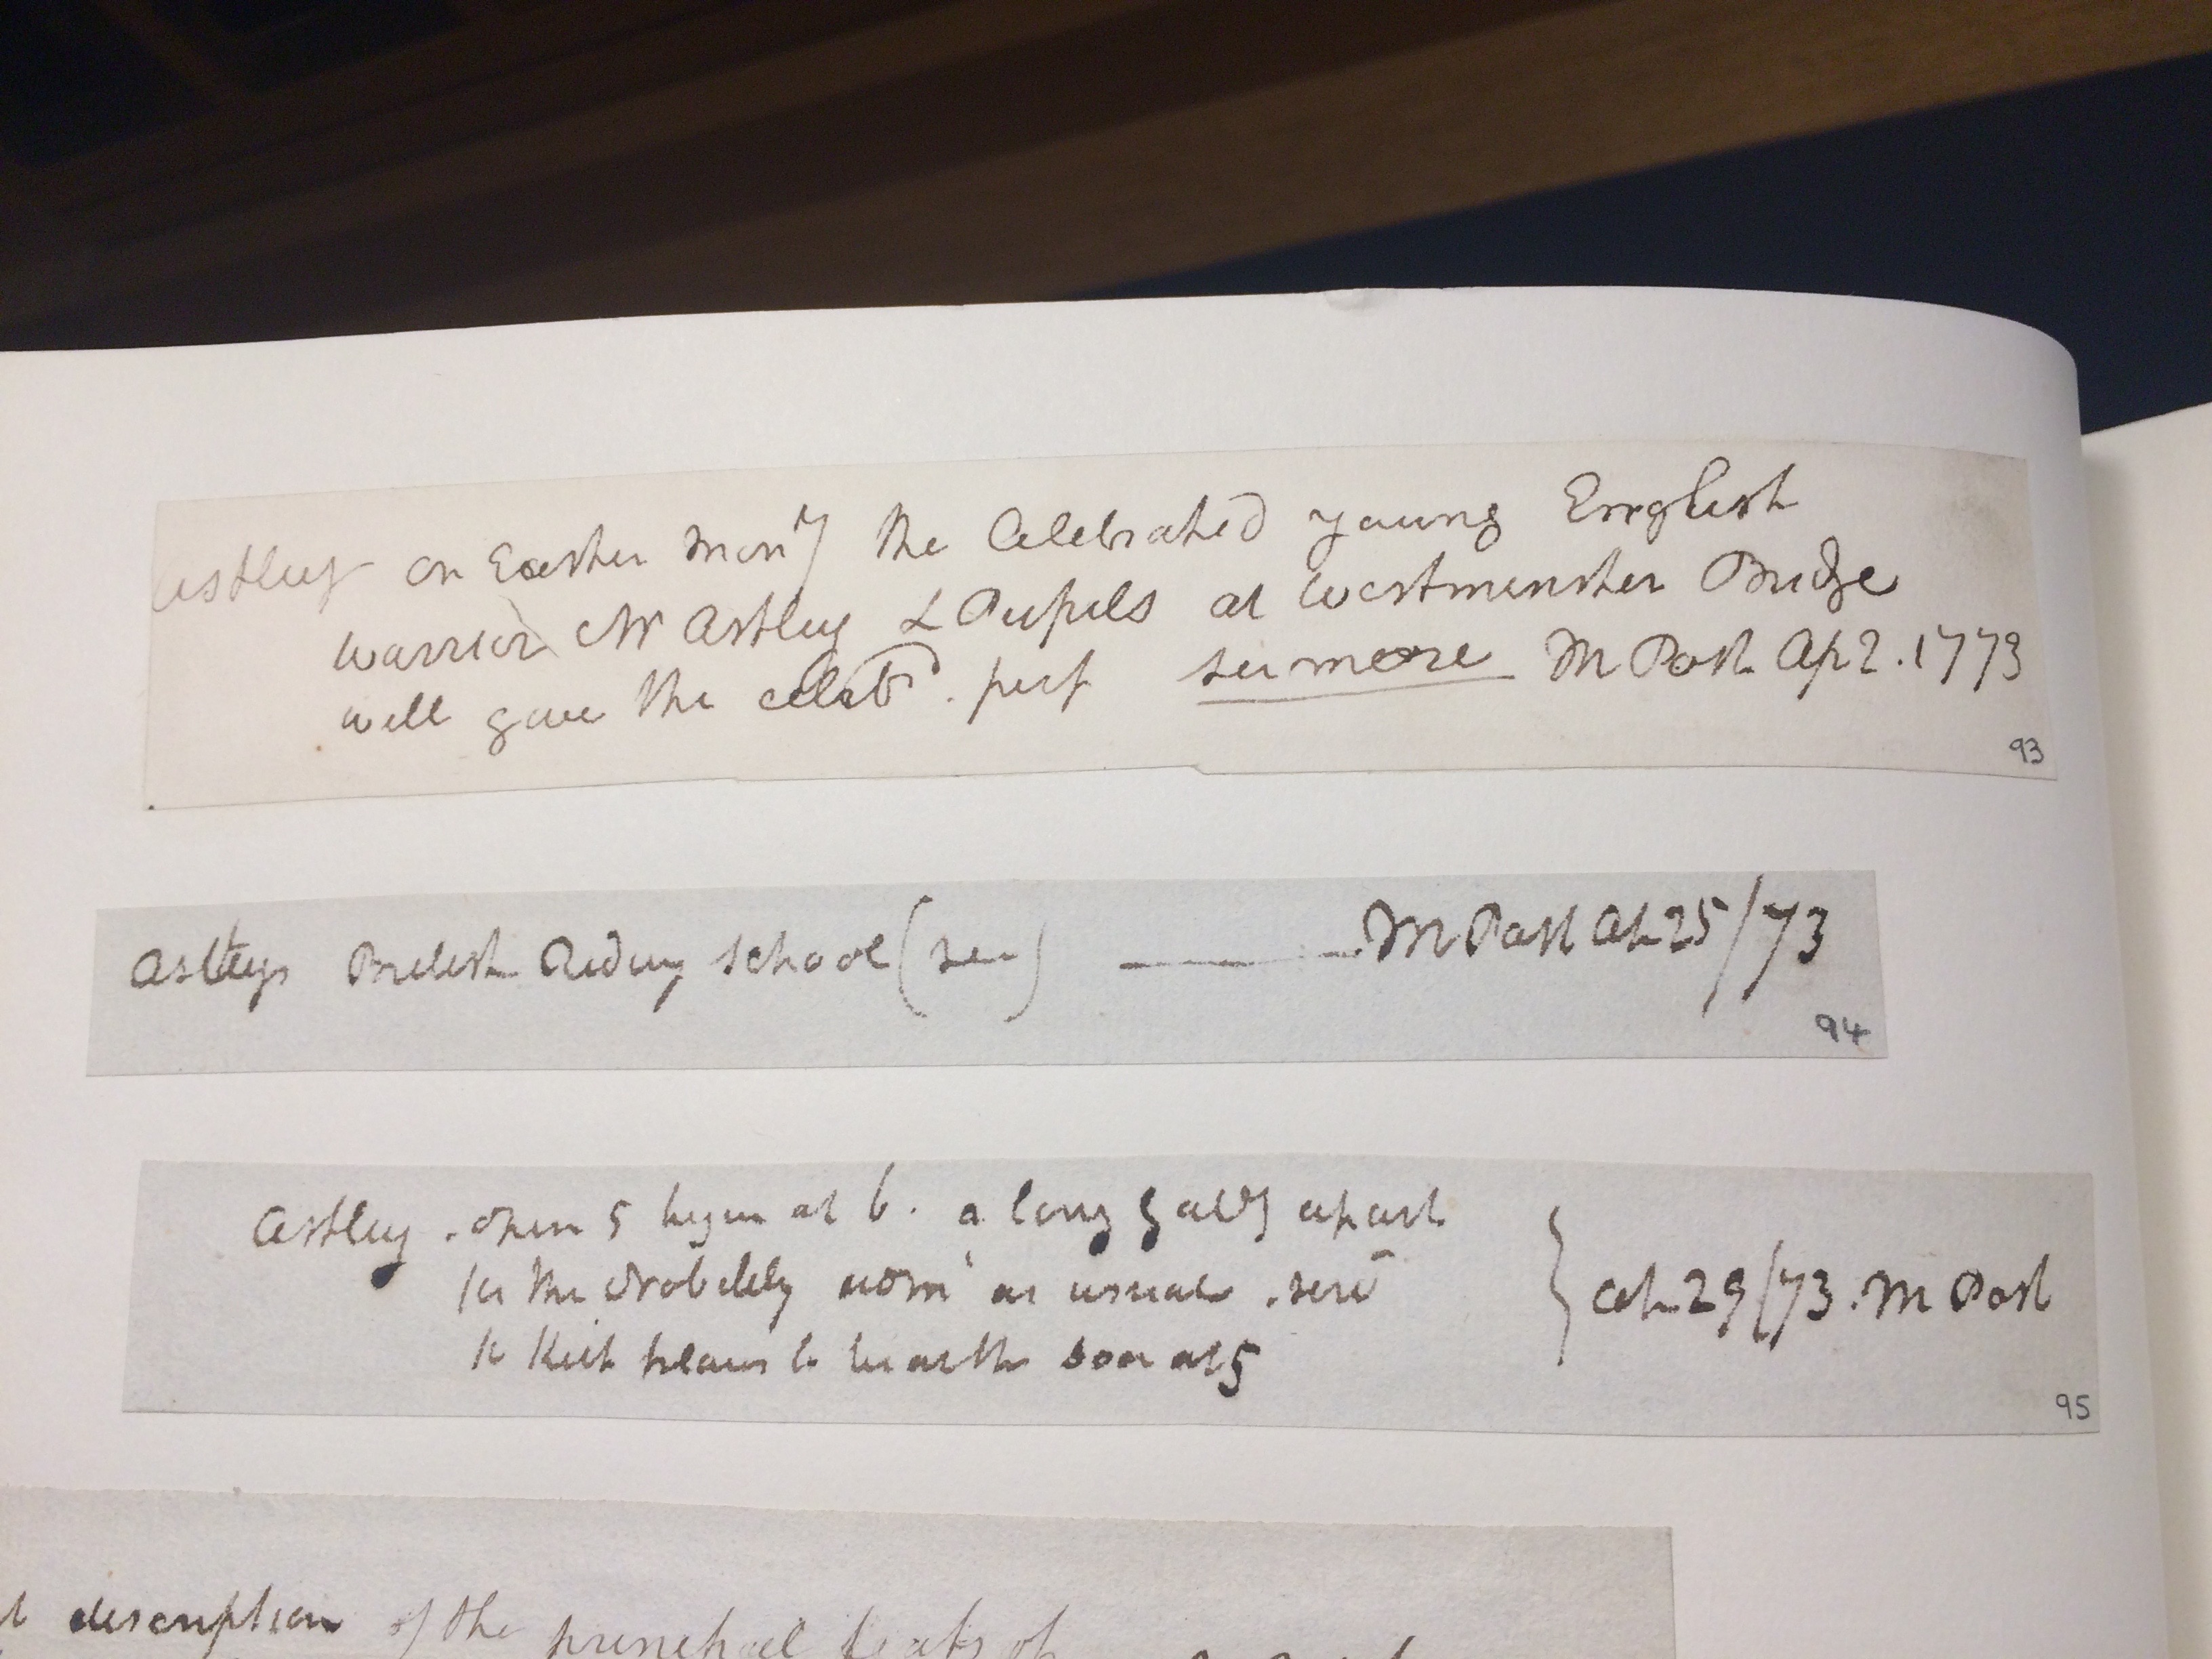 Astley on Easter Mony the Celebrated young English
warrior Mr Astley & Pupils at Westminster Bridge
will give the celebd. perf see more M Post Ap 2. 1773
93
Astleys British Riding School (see) M Post Ap 25/73
94
Astley . open 5 begin at 6. a long Gally apart
for the Nobility adm as usual . serv
to keep places to be at the door at 5
} Ap 29/73. M Post
95
description of the principal feats of